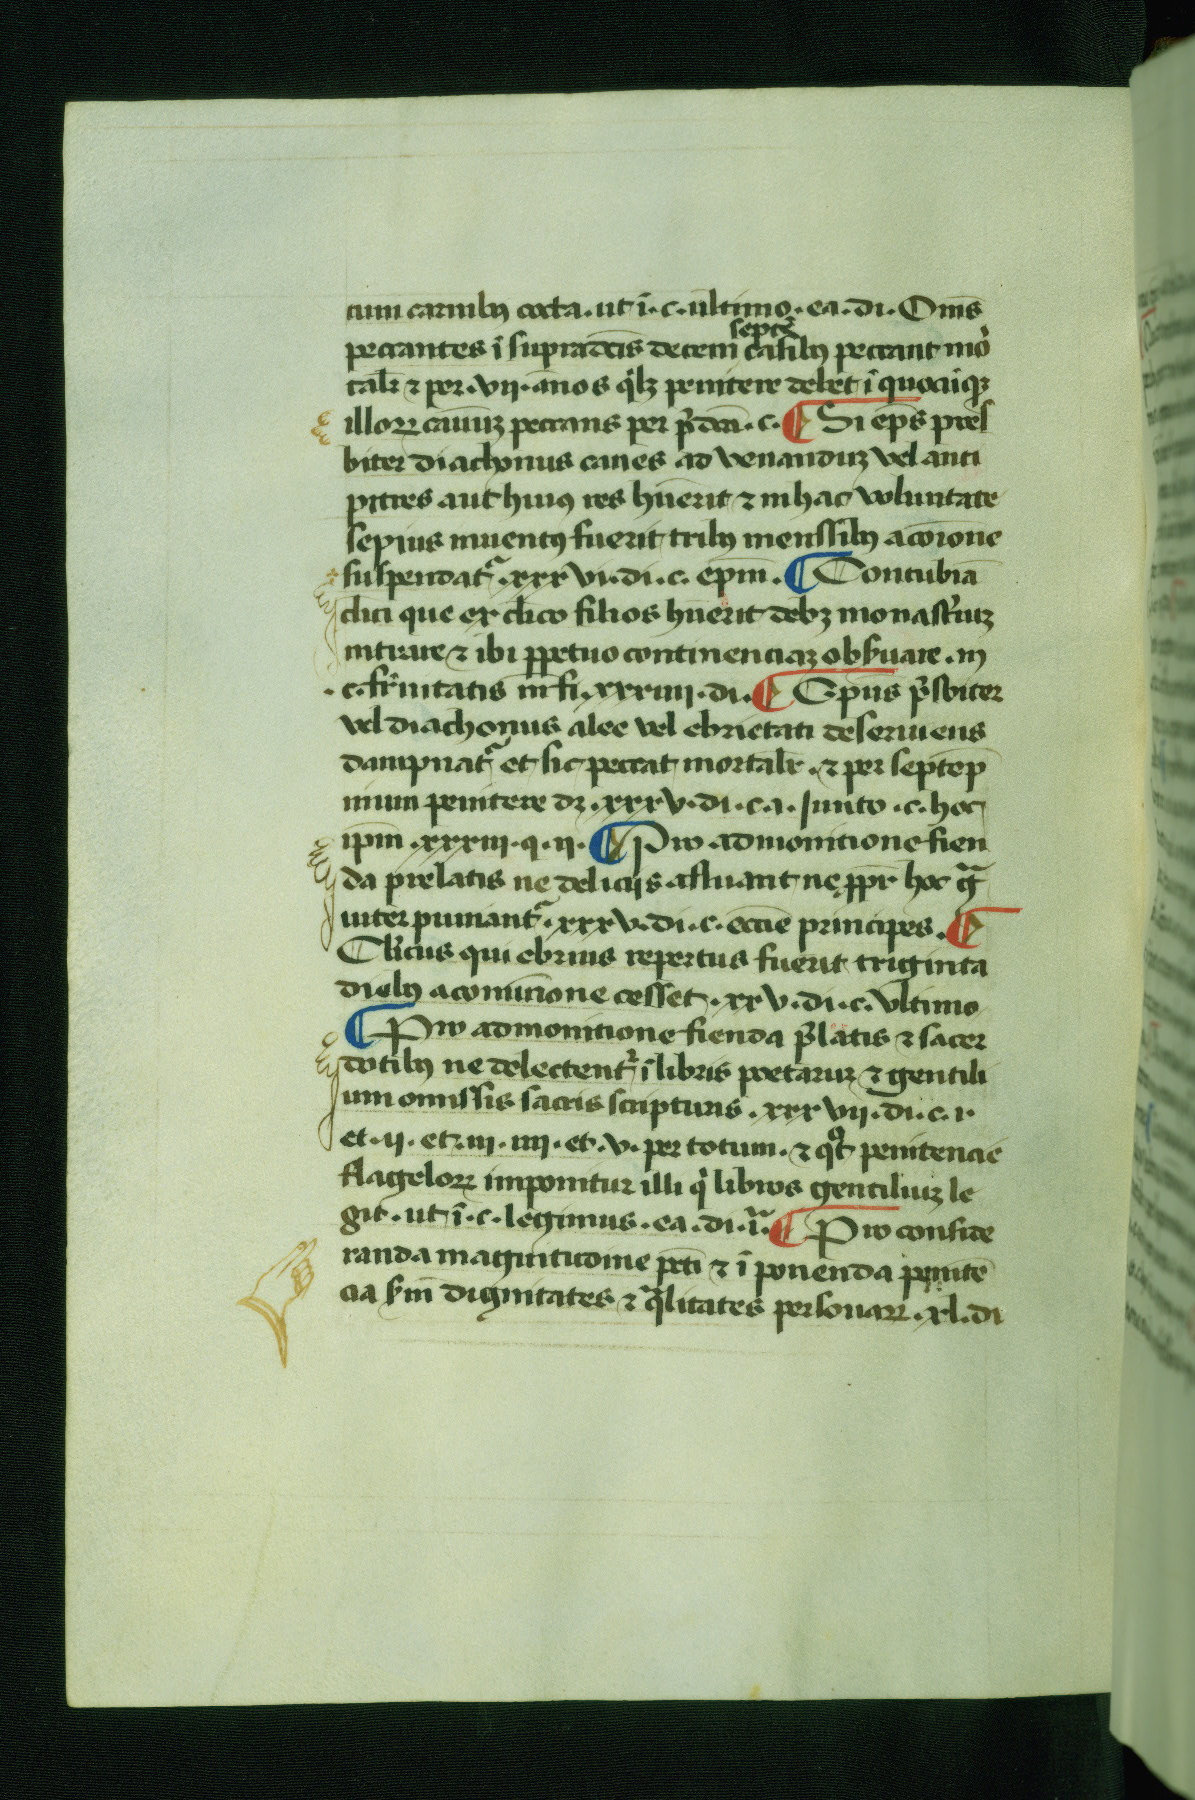 cum carnibꝯ cocta · ut ī · c · ultimo · ea · di · Om̄s
peccantes ī supradcīs decem septē casibꝯ peccant mo
talr̄ ⁊ per · vii · ānos qͥlꝫ penitere debet ī quocūqꝫ
illoꝝ casuuꝫ peccans per p̄dcm̄ · c · ¶ Si ep̄s pres
biter diachonus canes ad venanduꝫ vel anci
pitres aut huiꝯ res hūerit ⁊ in hac voluntate
sepius inuentꝯ fuerit tribꝯ menssibꝯ a coīone
suspendat᷑ · xxxvi · di · c · ep̄m · ¶ Contubīa
cl̄ici que ex cl̄ico filios hūerit debꝫ monast̄iuꝫ
intrare ⁊ ibi ꝑpetuo continenciaꝫ obs̄uare · in
· c · frīnitatis in fi · xxxiiii · di · ¶ Ep̄us p̄sbiter
vel diachonus alee vel ebrietati deseruiens
dampnat᷑ et sic peccat mortalr̄ · ⁊ per septēp
nium penitere dꝫ · xxxv · di · c · i · Iuncto · c · hoc
ip̄m · xxxiii · q · ii · ¶ Pro admonitione fien
da prelatis ne deliciis afluant ne ꝓpr̄ hoc gͣ
uiter puniant᷑ · xxxv · di · c · ecc̄ie principes · ¶
Cl̄icus qui ebrius repertus fuerit triginta
diebꝯ a comūnione cesset · xxv · di · c · vltimo
¶ Pro admonitione fienda p̄latis ⁊ sacer
dotibꝯ ne delectent᷑ ī libris poetaruꝫ ⁊ gentili
um omissis sacris scripturis · xxxvii · di · c · i ·
et · ii · et · iii · iiii · et · v · per totum · ⁊ qͦt penitencie
flageloꝝ imponitur illi qͥ libros gentiliuꝫ le
git · ut ī · c · legimus · ea · di · iͣ · ¶ Pro conside
randa magnitudine pcti ⁊ ī ponenda penitē
cia scdm̄ dignitates ⁊ qͣlitates personaꝝ · xl · di